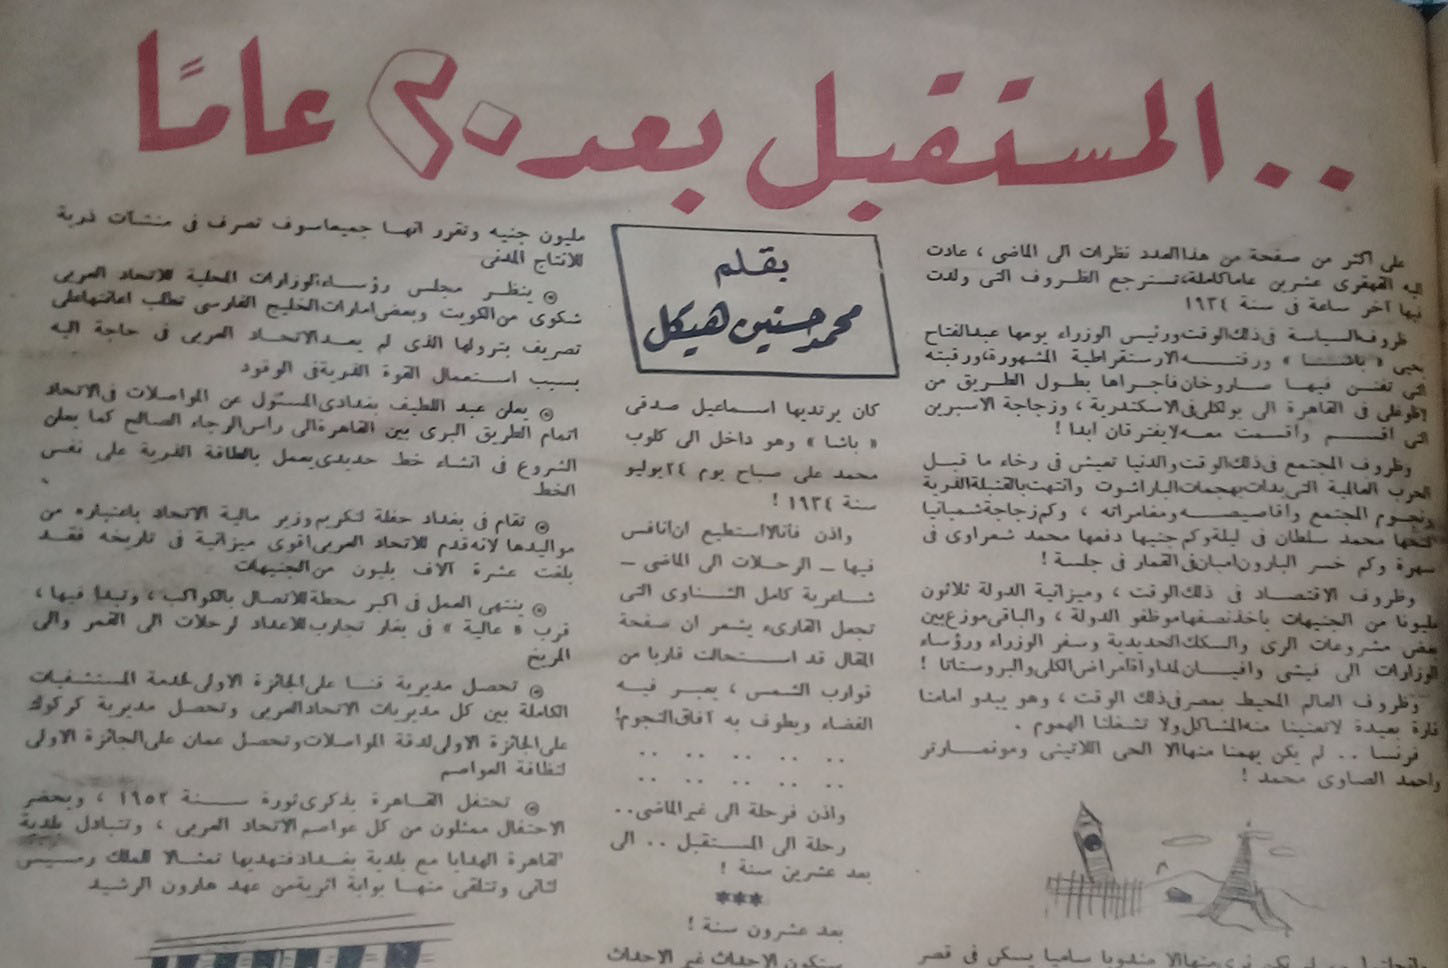 .. المستقبل بعد ٢٠ عامًا
بقلم
محمد حسنين هيكل
على اكثر من صفحة من هذا العدد نظرات الى الماضى ، عادت
اليه القهقرى عشرين عاما كاملة، تسترجع الظروف التى ولدت
فيها آخر ساعة فى سنة ١٩٣٤
ظروف السياسة فى ذلك الوقت ورئيس الوزراء يومها عبد الفتاح
يحيى « باشا » ورقته الارستقراطية المشهورة، ورقبته
التى تفنن فيها صاروخان فأجراها بطول الطريق من
فى القاهرة الى بولكلى فى الاسكندرية ، وزجاجة الاسبرين
التى أقسم وأقسمت معه لا يفترقان ابدا !
وظروف المجتمع فى ذلك الوقت والدنيا تعيش فى رخاء ما قبل
الحرب العالمية التى بدأت بهجمات الباراشوت وانتهت بالقنبلة الذرية
ونجوم المجتمع وأقاصيصه ومغامراته ، وكم زجاجة شمبانيا
فتحها محمد سلطان فى ليلة وكم جنيها دفعها محمد شعراوى فى
سهرة وكم خسر البارون امبان فى القمار فى جلسة !
وظروف الاقتصاد فى ذلك الوقت ، وميزانية الدولة ثلاثون
مليونا من الجنيهات يأخذ نصفها موظفو الدولة ، والباقى موزع بين
بعض مشروعات الرى والسكك الحديدية وسفر الوزراء ورؤساء
الوزارات الى فيشى وافيان لمداواة أمراض الكلى والبروستاتا !
وظروف العالم المحيط بمصر فى ذلك الوقت ، وهو يبدو أمامنا
قارة بعيدة لا تعنينا منه المشاكل ولا تشغلنا الهموم .
فرنسا .. لم يكن يهمنا منها الا الحى اللاتينى ومونمارتر
واحمد الصاوى محمد !
لم يكن نرى منها الا مندوبا ساميا يسكن فى قصر
كان يرتديها اسماعيل صدقى
« باشا » وهو داخل الى كلوب
محمد على صباح يوم ٢٤ يوليو
سنة ١٩٣٤ !
واذن فأنا لا استطيع ان أنافس
فيها ـ الرحلات الى الماضى ـ
شاعرية كامل الشناوى التى
تجعل القارىء يشعر ان صفحة
المقال قد استحالت قاربا من
قوارب الشمس ، يعبر فيه
الفضاء ويطوف به آفاق النجوم!
.. .. .. .. ..
.. .. .. .. ..
واذن فرحلة الى غير الماضى..
رحلة الى المستقبل .. الى
بعد عشرين سنة !
***
بعد عشرون سنة !
ستكون الاحداث غير الاحداث
مليون جنيه وتقرر انها جميعا سوف تصرف فى منشآت ذرية
للانتاج المدنى
⊙ ينظر مجلس رؤساء الوزارات المحلية للاتحاد العربى
شكوى من الكويت وبعض امارات الخليج الفارسى تطلب اعانتها على
تصريف بترولها الذى لم يعد الاتحاد العربى فى حاجة اليه
بسبب استعمال القوة الذرية فى الوقود
⊙ يعلن عبد اللطيف بغدادى المسئول عن المواصلات فى الاتحاد
اتمام الطريق البرى بين القاهرة الى رأس الرجاء الصالح كما يعلن
الشروع فى انشاء خط حديدى يعمل بالطاقة الذرية على نفس
الخط
⊙ تقام فى بغداد حفلة لتكريم وزير مالية الاتحاد باعتباره من
مواليدها لانه قدم للاتحاد العربى أقوى ميزانية فى تاريخه فقد
بلغت عشرة آلاف بليون من الجنيهات
⊙ ينتهى العمل فى اكبر محطة للاتصال بالكواكب ، وتبدأ فيها ،
قرب « عالية » فى تجارب للاعداد لرحلات الى القمر والى
المريخ
⊙ تحصل مديرية قنا على الجائزة الاولى لخدمة المستشفيات
الكاملة بين كل مديريات الاتحاد العربى وتحصل مديرية كركوك
على الجائزة الاولى لدقة المواصلات وتحصل عمان على الجائزة الاولى
لنظافة العواصم
⊙ تحتفل القاهرة بذكرى ثورة سنة ١٩٥٢ ، ويحضر
الاحتفال ممثلون من كل عواصم الاتحاد العربى ، وتتبادل بلدية
القاهرة الهدايا مع بلدية بغداد فتهديها تمثالا للملك رمسيس
الثانى وتتلقى منها بوابة اثرية من عهد هارون الرشيد